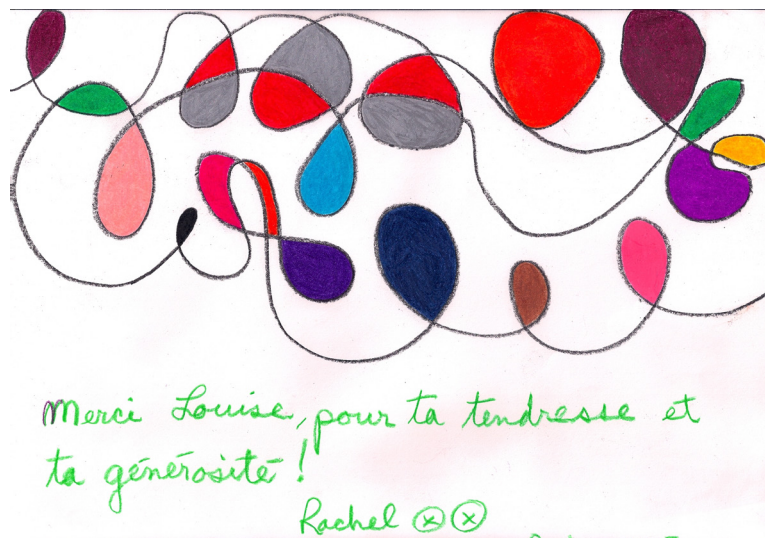 Merci Louise, pour ta tendresse et
ta générosité !
Rachel ⓧ ⓧ